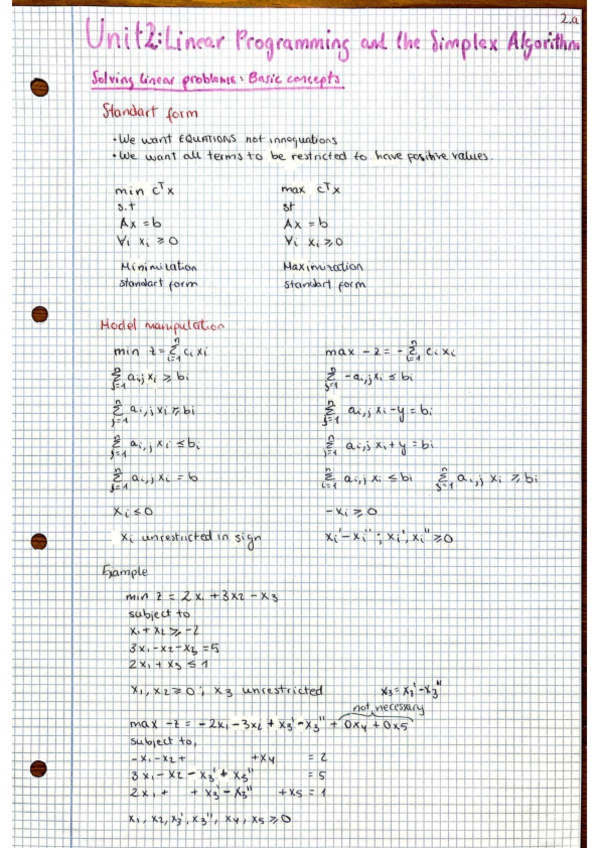 2.a
Unit2: Linear Programming and the Simplex Algorithm
Solving linear problems: Basic concepts
Standart form
• We want EQUATIONS not innequations
• We want all terms to be restricted to have positive values.
min cᵀx max cᵀx
s.t st
Ax = b Ax = b
∀i xi ≥ 0 ∀i xi ≥ 0
Minimization Maximization
standart form standart form
Model manipulation
min z = Σⁿᵢ₌₁ ci xi max -z = - Σⁿᵢ₌₁ ci xi
Σⁿⱼ₌₁ ai,j xi ≥ bi Σⁿⱼ₌₁ -ai,j xi ≤ bi
Σⁿⱼ₌₁ ai,j xi ≥ bi Σⁿⱼ₌₁ ai,j xi - y = bi
Σⁿⱼ₌₁ ai,j xi ≤ bi Σⁿⱼ₌₁ ai,j xi + y = bi
Σⁿⱼ₌₁ ai,j xi = b Σⁿᵢ₌₁ ai,j xi ≤ bi Σⁿⱼ₌₁ ai,j xi ≥ bi
xi ≤ 0 -xi ≥ 0
xi unrestricted in sign xi' - xi'' ; xi', xi'' ≥ 0
Example
min z = 2x1 + 3x2 - x3
subject to
x1 + x2 ≥ -2
3x1 - x2 - x3 = 5
2x1 + x3 ≤ 1
x1, x2 ≥ 0 ; x3 unrestricted x3 = x3' - x3''
not necessary
max -z = -2x1 - 3x2 + x3' - x3'' + 0x4 + 0x5
subject to,
-x1 - x2 + +x4 = 2
3x1 - x2 - x3' + x3'' = 5
2x1 + + x3' - x3'' +x5 = 1
x1, x2, x3', x3'', x4, x5 ≥ 0